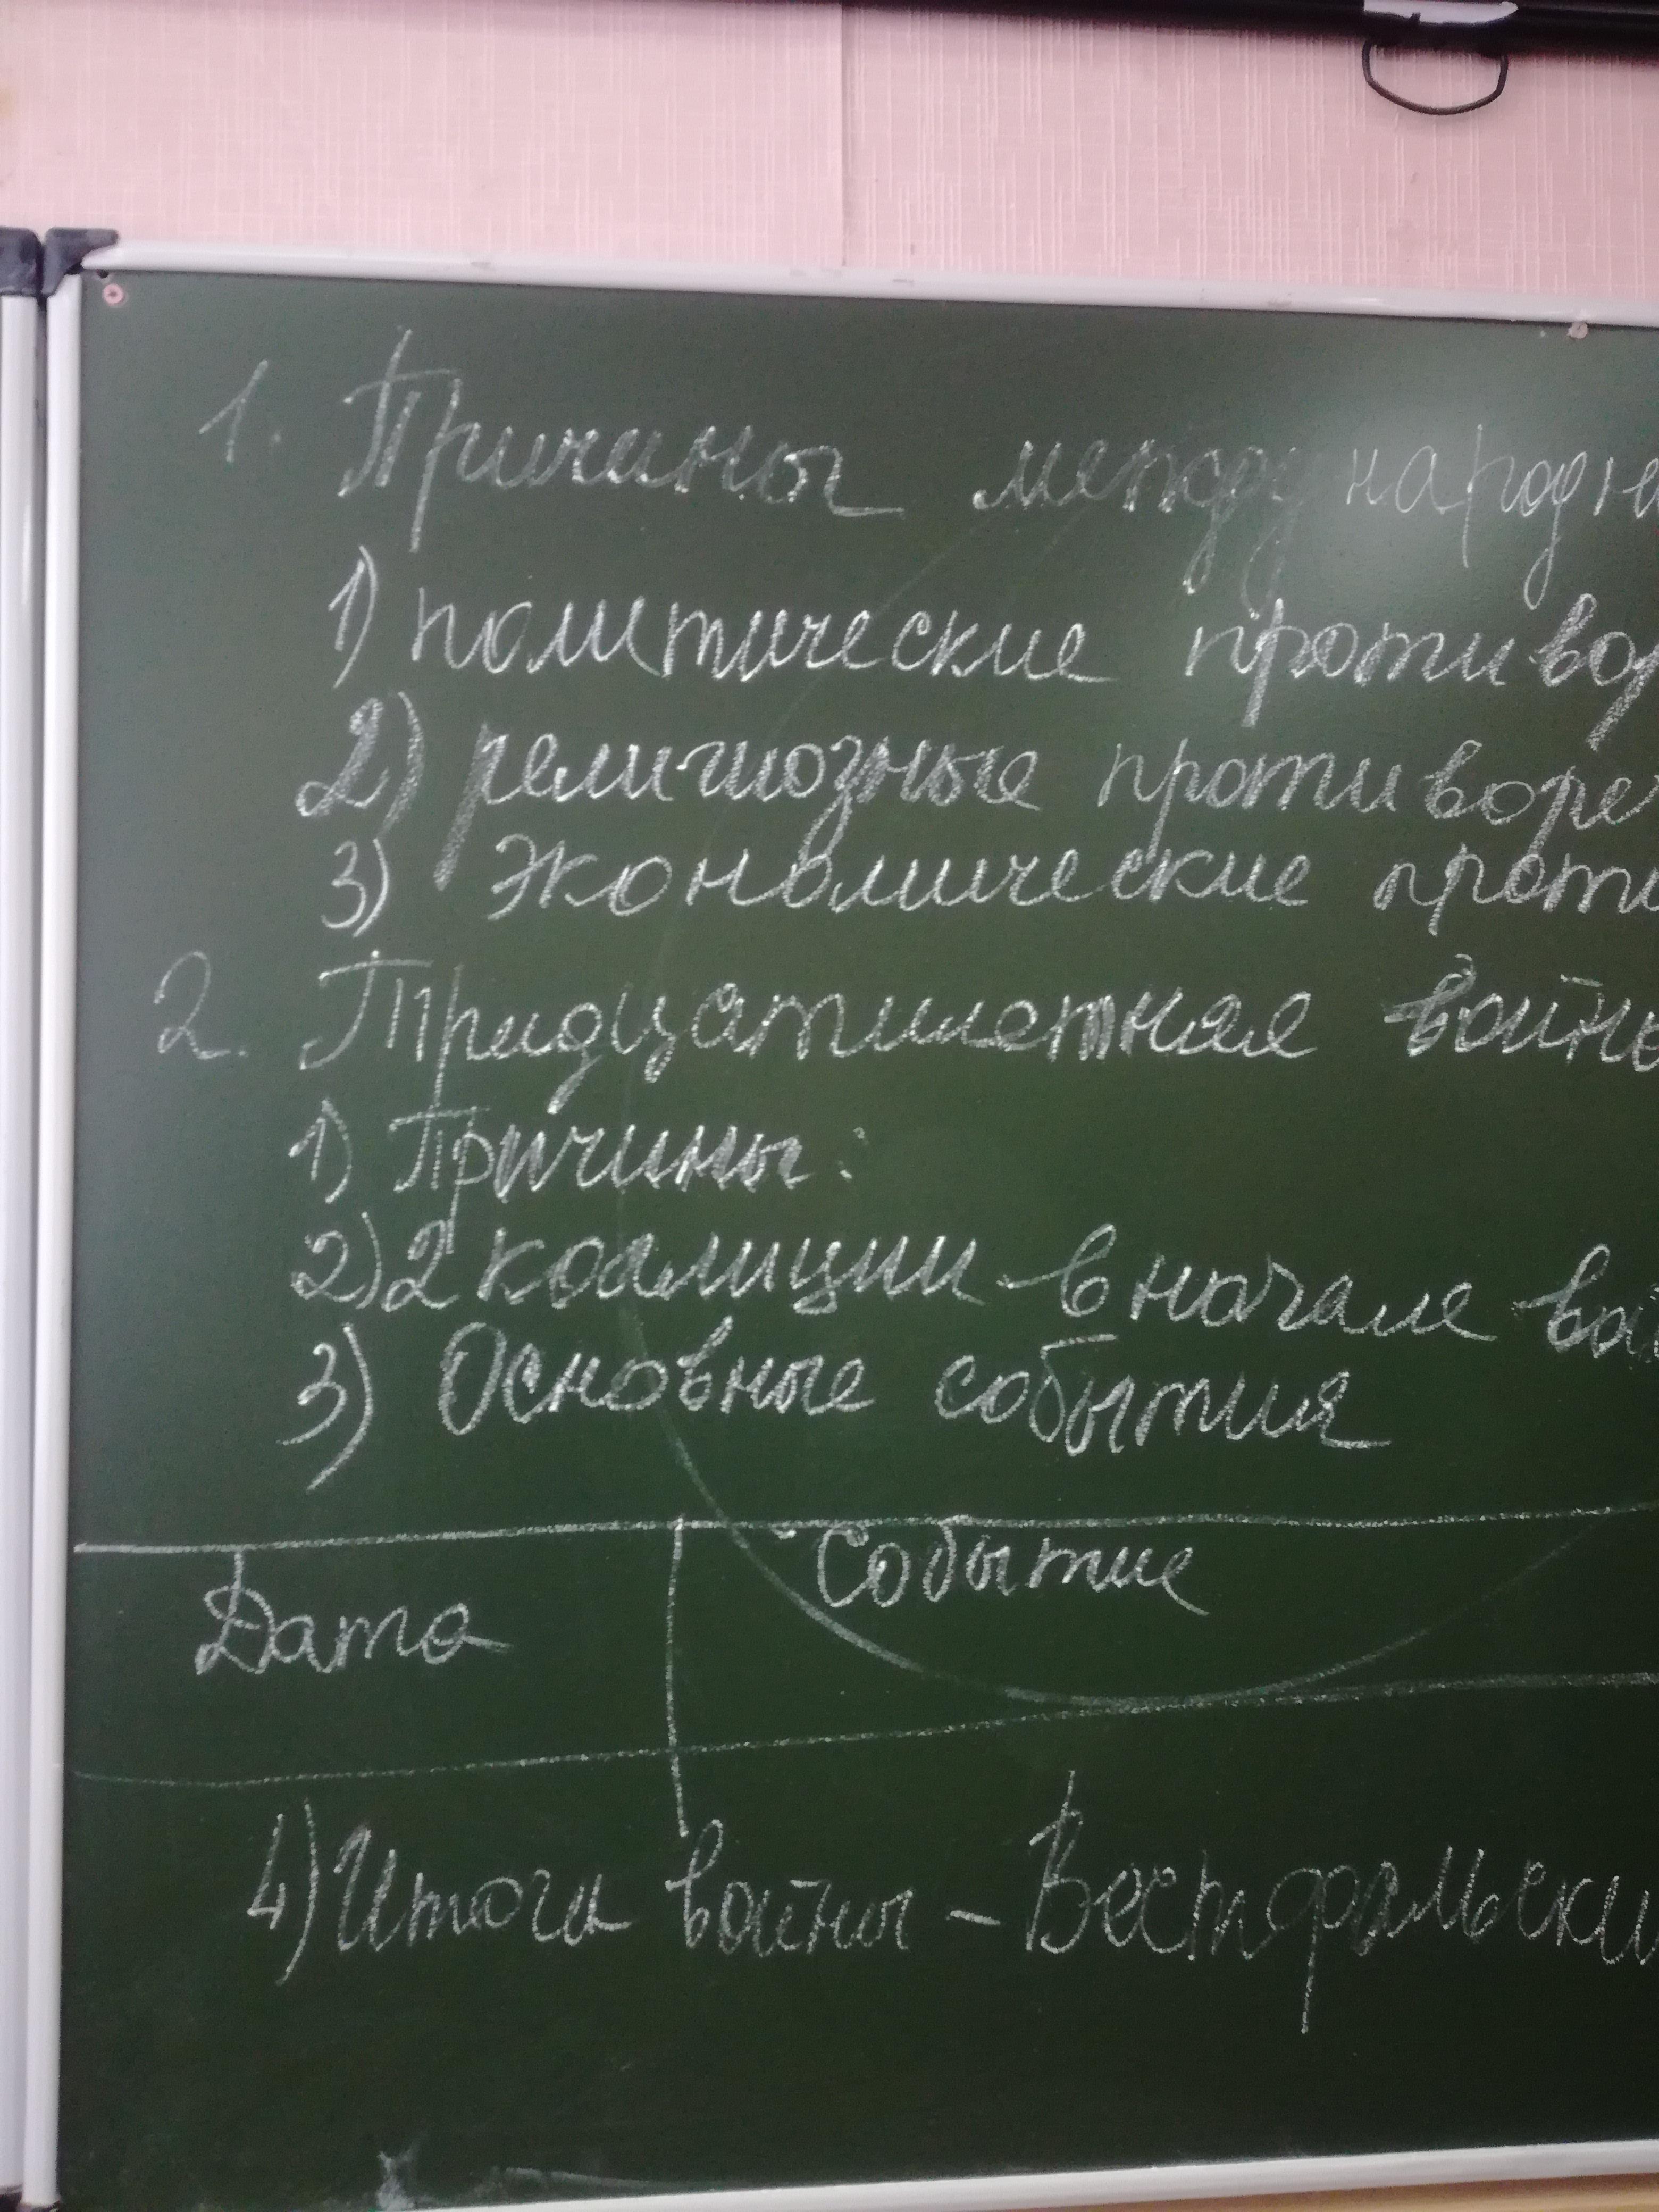 1. Причины международн
1) политические противор
2) религиозные противоре
3) экономические проти
2. Тридцатилетняя война
1) Причины:
2) 2 коалиции в начале вой
3) Основные события
Дата Событие
4) Итоги войны - Вестфальски